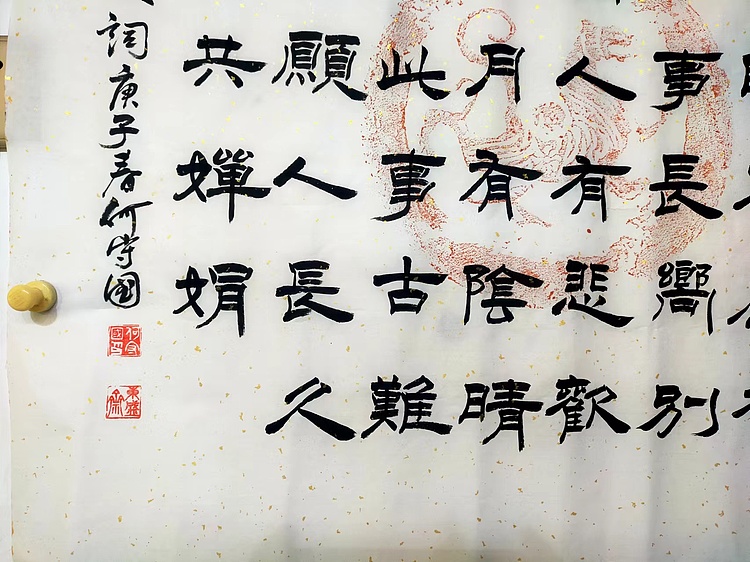 事長嚮別
人有悲歡
月有陰晴
此事古難
願人長久
共嬋娟
詞庚子春何守國
何守國印